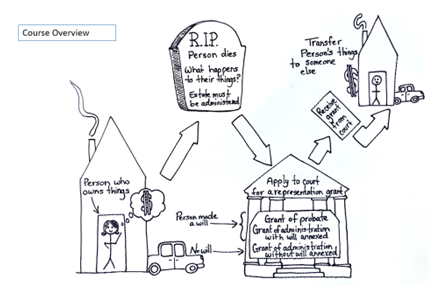 Course Overview
R.I.P.
Person dies
What happens
to their things?
Estate must
be administered
Transfer
Person's things
to someone
else
Receive
grant
from
court
Person who
owns things
$
Person made
a will
No will
Apply to court
for a representation grant
Grant of probate
Grant of administration
with will annexed
Grant of administration
without will annexed
$